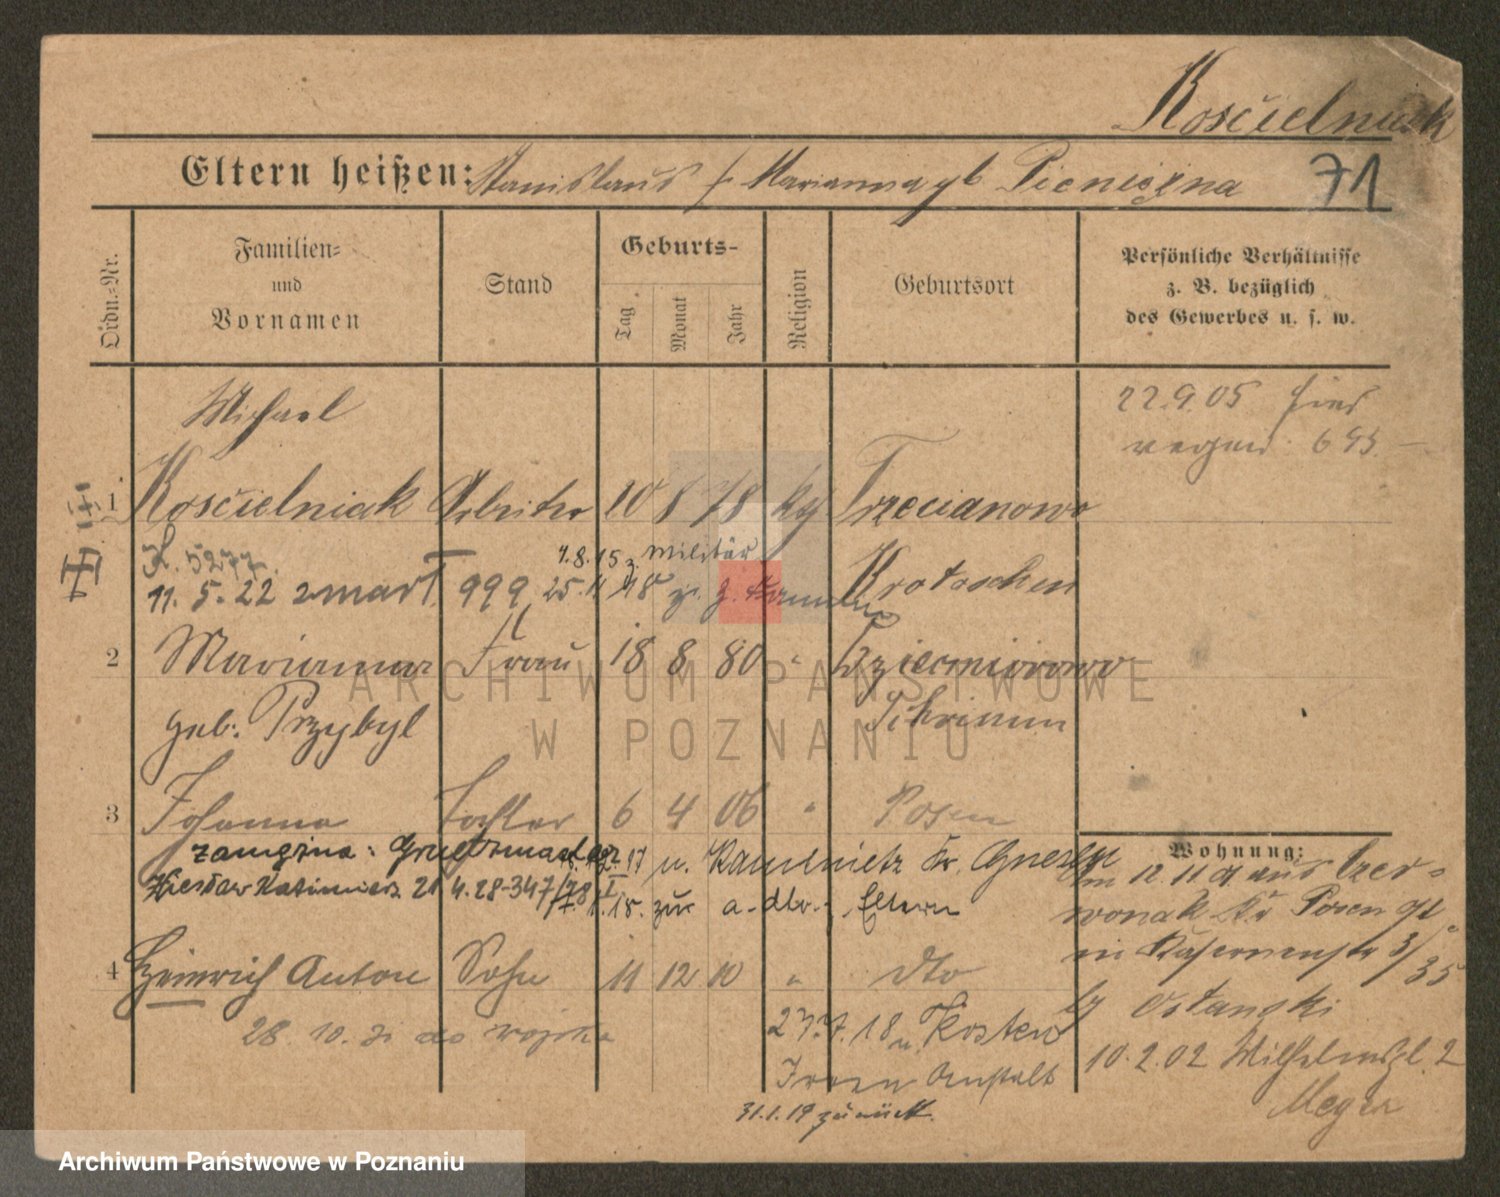 Kościelniak
Eltern heißen: Stanislaus & Marianna gb Pieniczna
71
Ordn.-Nr.
Familien- und Vornamen
Stand
Geburts-
Tag
Monat
Jahr
Religion
Geburtsort
Persönliche Verhältnisse
z. B. bezüglich
des Gewerbes u. s. w.
Michael
22.9.05
693.
1 Kościelniak Arbeiter 10 8 78 kg Trzecianowo
K. 5277. 7.8.15 z. Militär Krotoschin
11. 5. 22 zmarł 999 25. 11 18
2 Marianna Frau 18 8 80 "
geb. Przybyl Schrimm
3 Johanna Tochter 6 4 06 " Posen
zamężna: 17 n. Kr. Gnesen
Wohnung:
Kazimierz 21 4.28-347/28 18. zur Eltern
12 11 01 aus Czer-
wonak Kr Posen
4 Heinrich Anton Sohn 11 12 10 " dto
in Kasernenstr 3/35
28. 10. do wojska
27.7.18 n. Kosten
bj Ostanski
Irren Anstalt
10.2.02 Wilhelmspl. 2
31.1.19 zurück.
ARCHIWUM PAŃSTWOWE
W POZNANIU
Archiwum Państwowe w Poznaniu